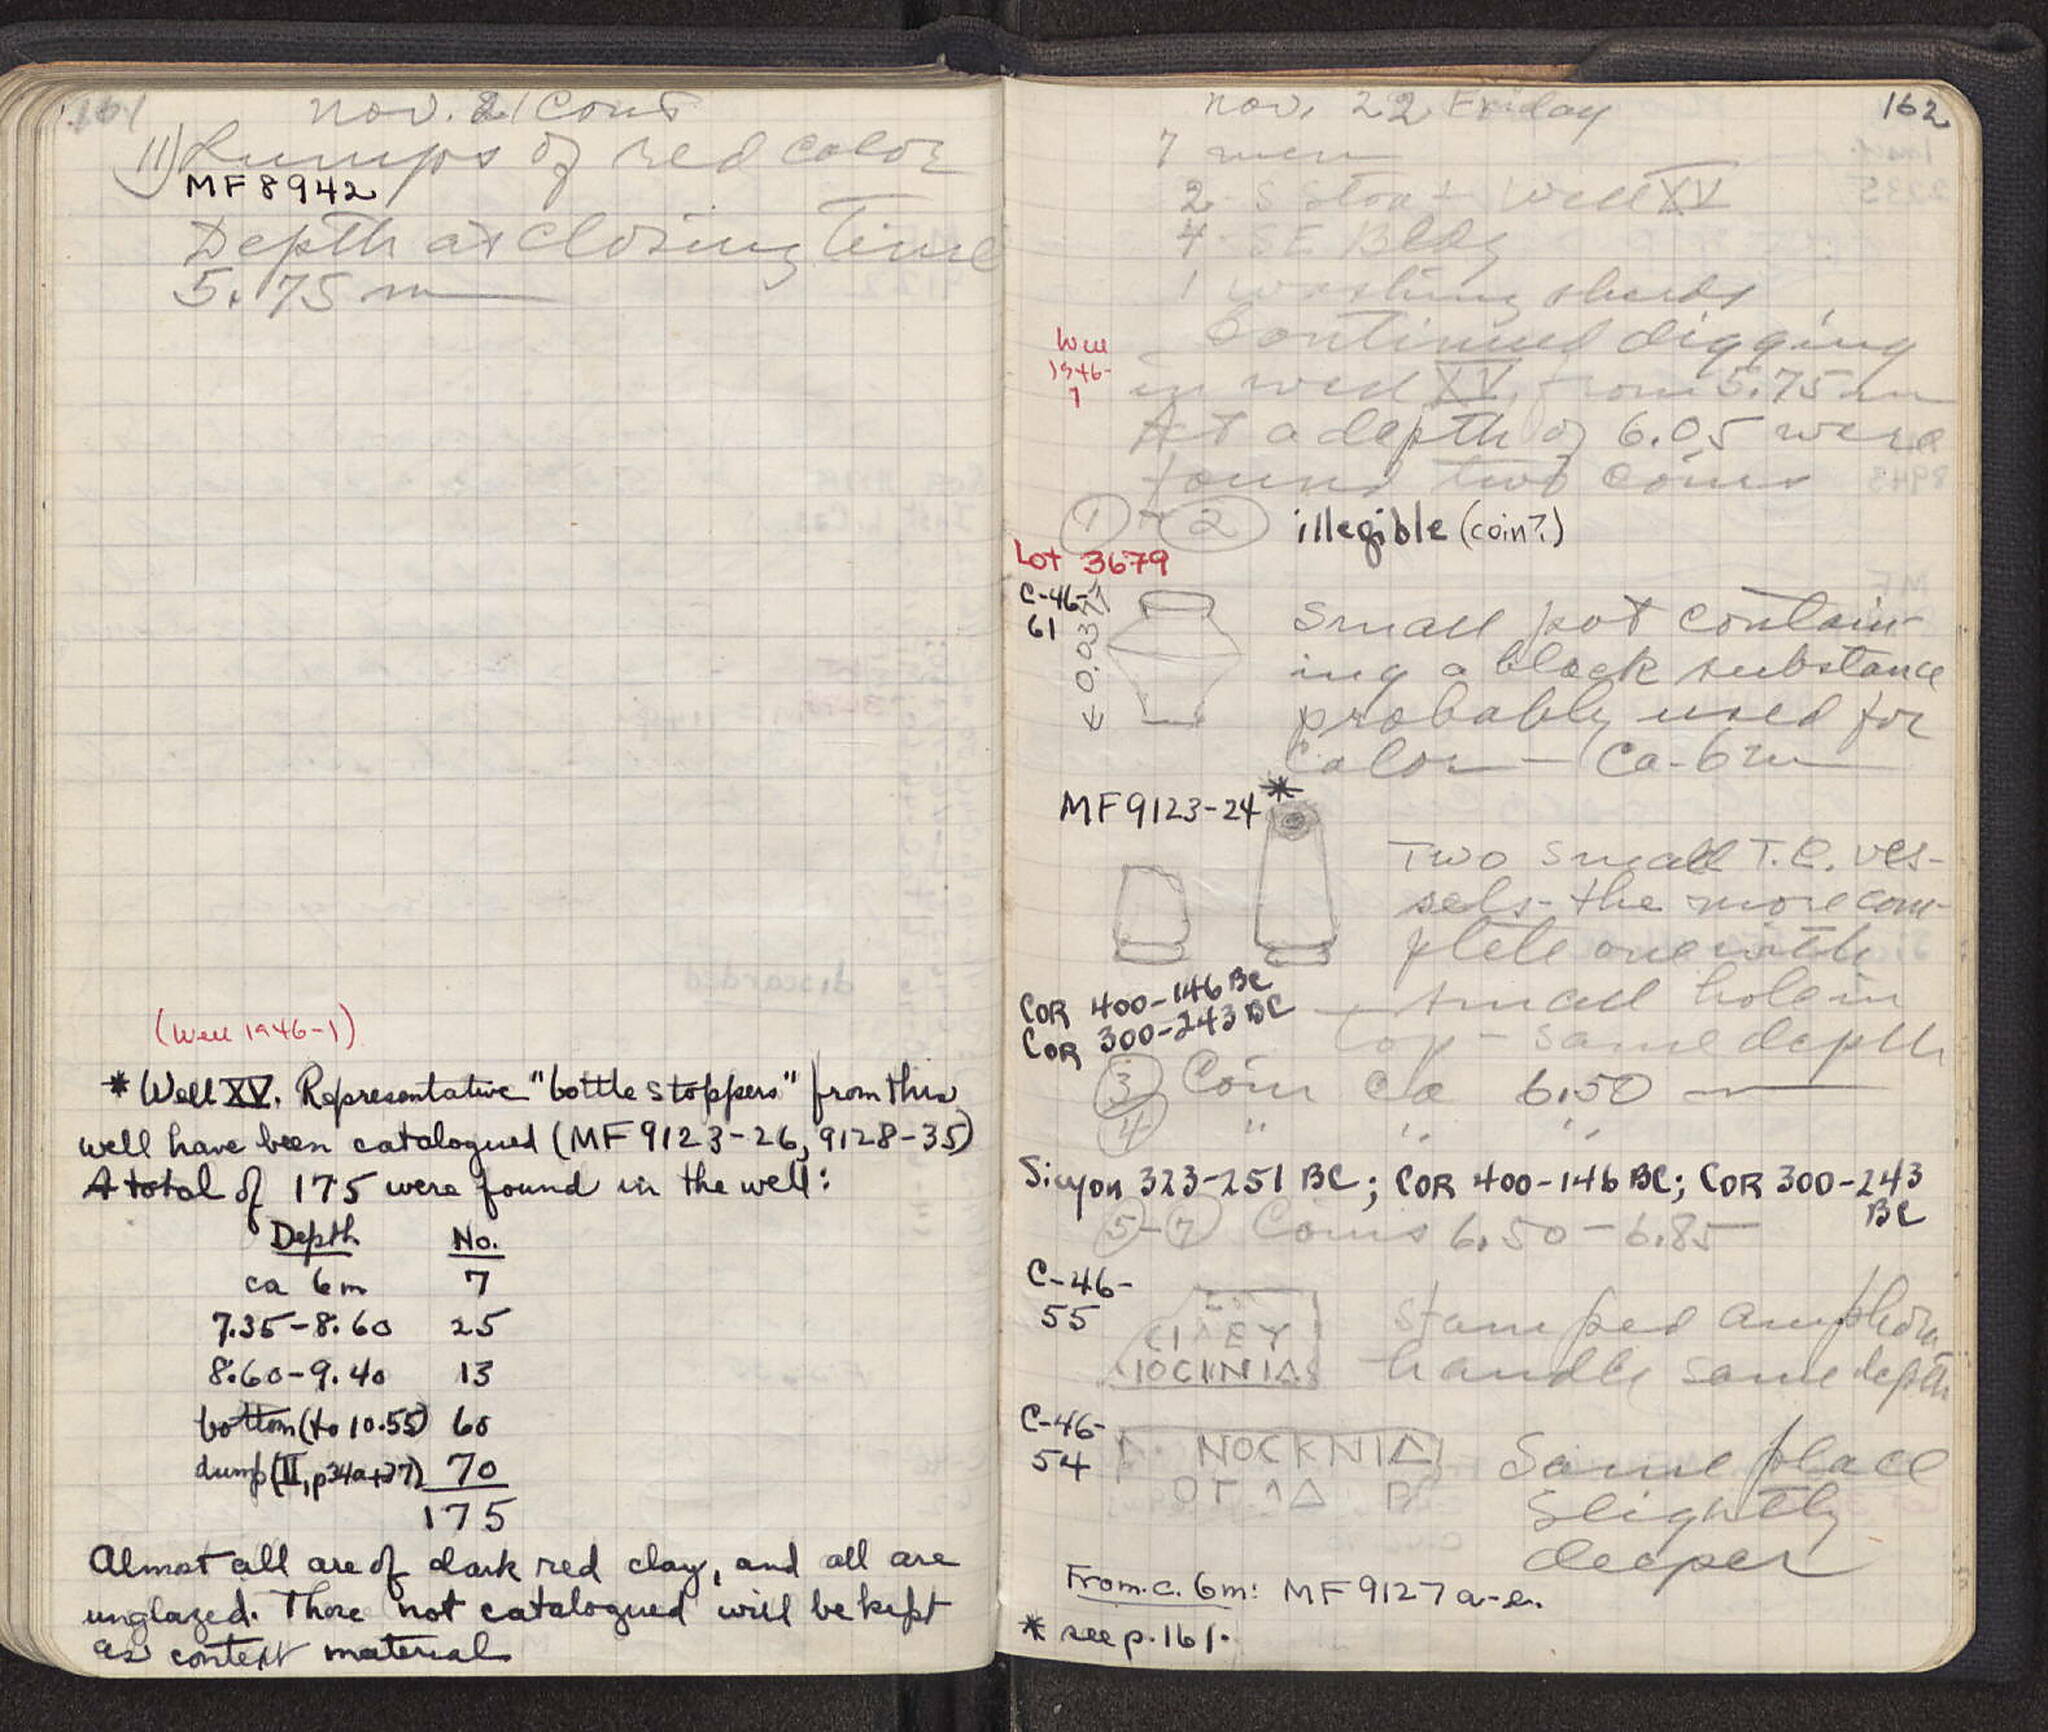 161
Nov. 21 Cont
11) Lumps of red color
MF 8942
Depth at closing time
5.75 m
(Well 1946-1)
* Well XV. Representative "bottle stoppers" from this
well have been catalogued (MF 9123-26, 9128-35)
A total of 175 were found in the well:
Depth No.
ca 6m 7
7.35-8.60 25
8.60-9.40 13
bottom (to 10.55) 60
dump (II, p34a+37) 70
175
Almost all are of dark red clay, and all are
unglazed. Those not catalogued will be kept
as context material
162
Nov. 22 Friday
7 men
2 S Stoa + Well XV
4 SE Bldg
1 washing sherds
Well
1946-
1
Continued digging
in well XV, from 5.75 m
At a depth of 6.05 were
found two coins
1 - 2 illegible (coin?)
Lot 3679
C-46-
61
0.037
Small pot contain-
ing a black substance
probably used for
color - Ca. 6m
MF 9123-24 *
Two small T.C. ves-
sels - the more com-
plete one with
small hole in
top - same depth
COR 400-146 BC
COR 300-243 BC
3 Coin Ca 6.50 m
4 " " "
Sicyon 323-251 BC; COR 400-146 BC; COR 300-243
BC
5-7 Coins 6.50-6.85
C-46-
55
IOCKNIΔ
Stamped amphora
handle same depth
C-46-
54
NOCKNIΔ
Same place
slightly
deeper
From c. 6m: MF 9127 a-e.
* see p. 161.
discarded